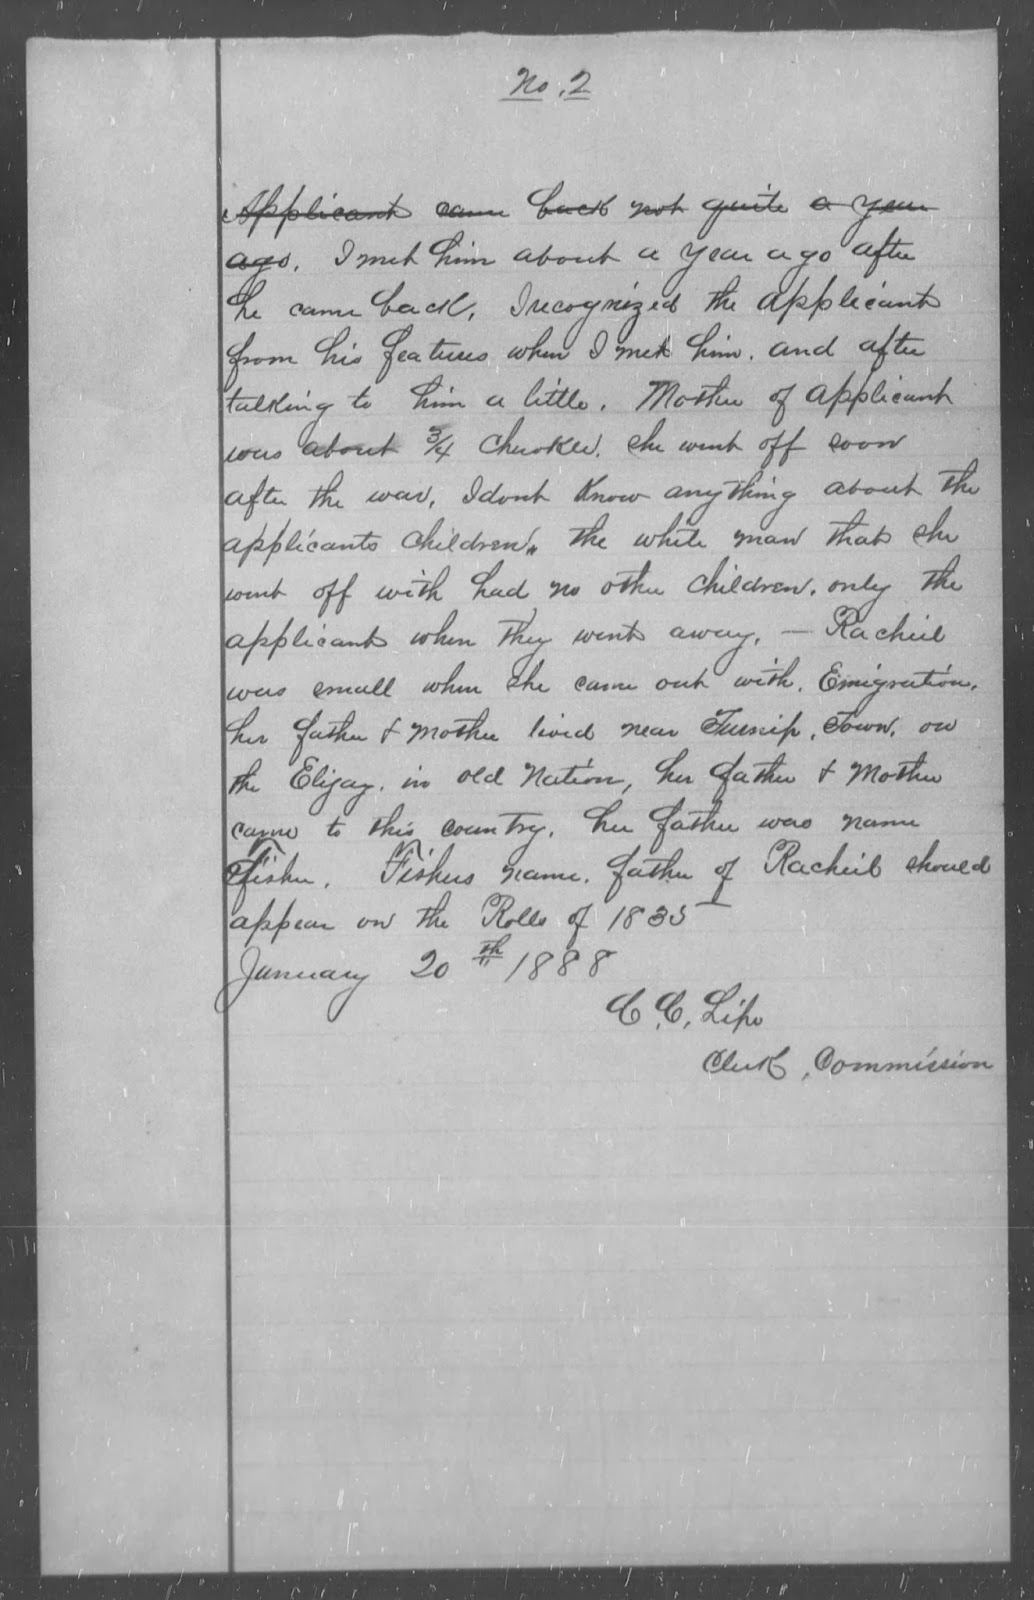 No. 2
Applicant came back not quite a year
ago. I met him about a year ago after
he came back, I recognized the applicant
from his features when I met him. and after
talking to him a little. Mother of applicant
was about 3/4 Cherokee. she went off soon
after the war, I dont Know anything about the
applicants children. the white man that she
went off with had no other children. only the
applicant when they went away, — Racheil
was small when she came out with. Emigration,
her father & mother lived near Turnip, Town, on
the Elijay. in old Nation, her father & Mother
came to this country. her father was name
Fisher. Fishers name. father of Racheil should
appear on the Rolls of 1835
January 20th 1888
C. C. Lipe
Clerk, Commission